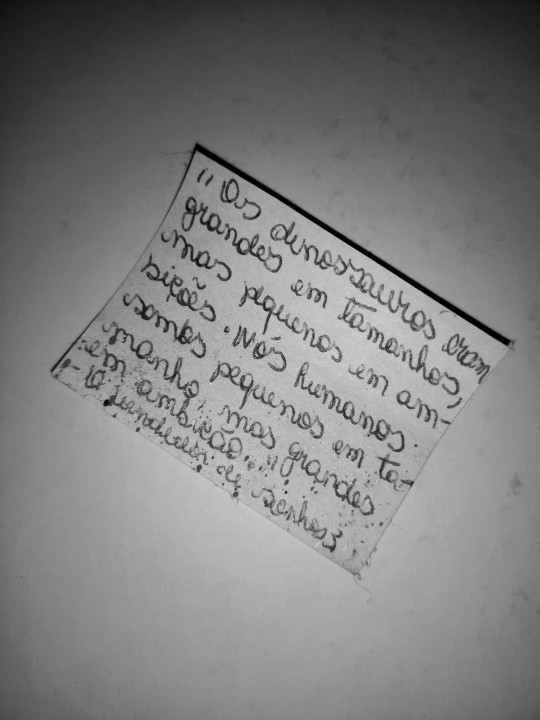 "Os dinossauros eram
grandes em tamanhos,
mas pquenos em am-
sições. Nós humanos
somos pequenos em ta-
manho, mas grandes
em ambição."
- O vendedor de sonhos